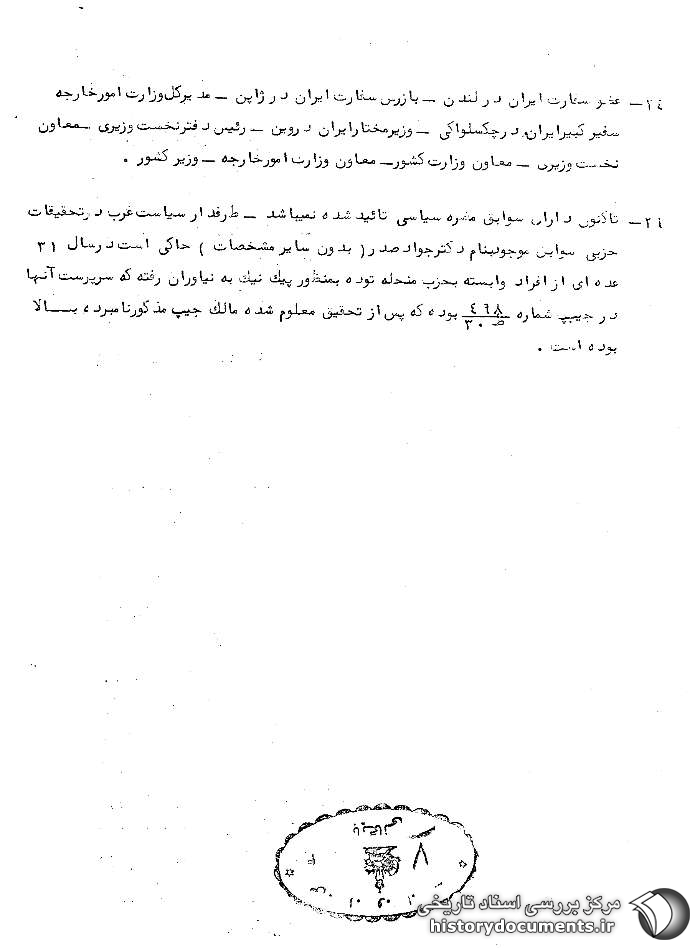 ۲٤ – عضو سفارت ایران در لندن – بازرس سفارت ایران در ژاپن – مدیرکل وزارت امورخارجه
سفیر کبیر ایران در چکسلواکی – وزیرمختار ایران در وین – رئیس دفتر نخست وزیری – معاون
نخست وزیری – معاون وزارت کشور – معاون وزارت امورخارجه – وزیر کشور .
۲٤ – تاکنون دارای سوابق مضره سیاسی تائید شده نمیباشد – طرفدار سیاست غرب در تحقیقات
حزبی سوابق موجود بنام دکتر جواد صدر ( بدون سایر مشخصات ) حاکی است در سال ۳۱
عده ای از افراد وابسته بحزب منحله توده بمنظور پیک نیک به نیاوران رفته که سرپرست آنها
در جیپ شماره بوده که پس از تحقیق معلوم شده مالک جیپ مذکور نامبرده بالا
بوده است .
بایگانی
۷
مرکز بررسی اسناد تاریخی
historydocuments.ir